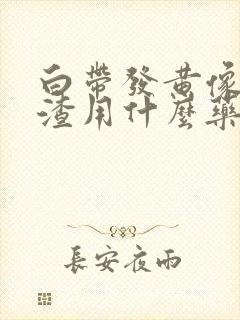 白帶發黃像
渣用什麼藥
長安夜雨